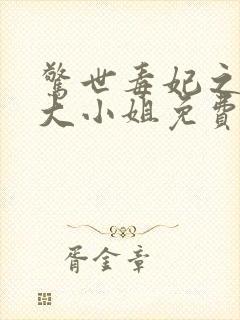 驚世毒妃之
大小姐免費
胥金章